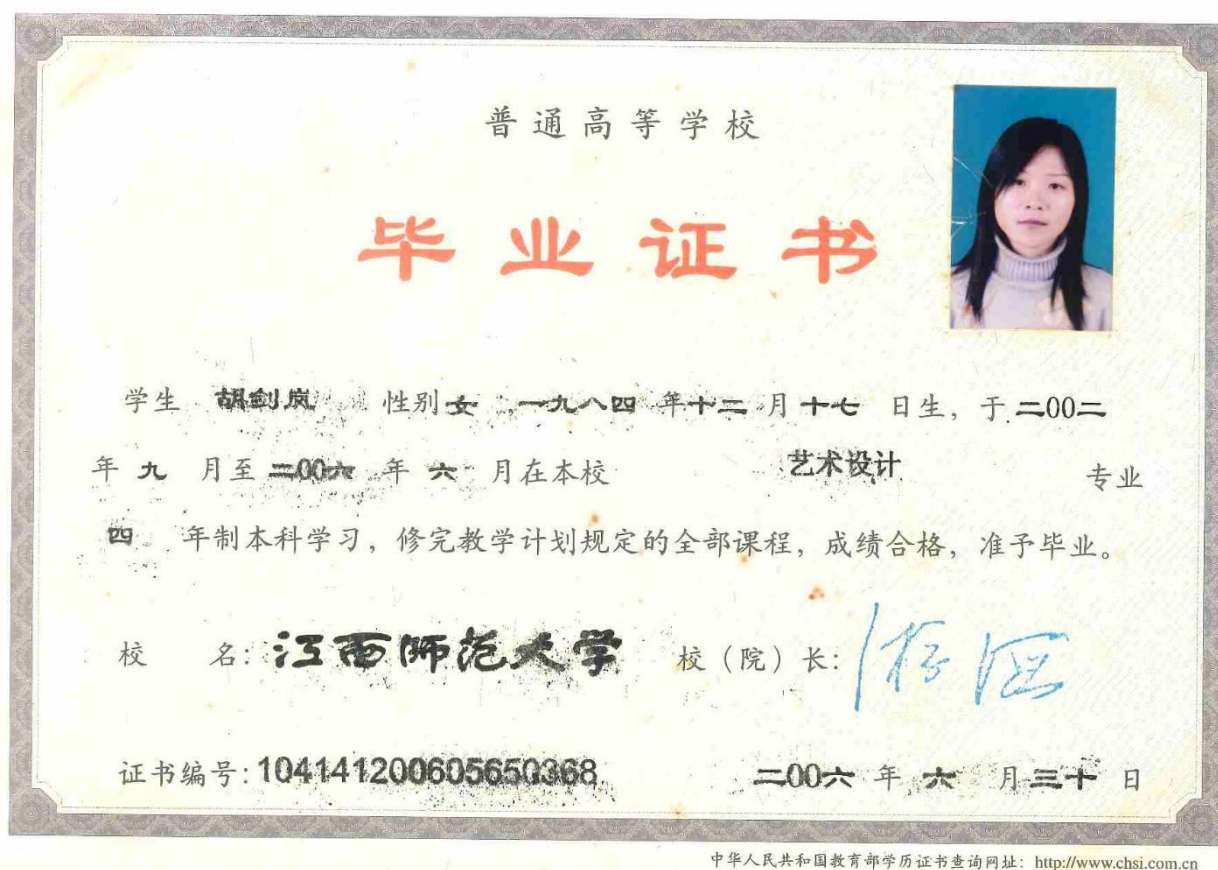 普通高等学校
毕业证书
学生 胡剑岚 性别 女 一九八四 年 十二 月 十七 日生，于 二00二
年 九 月至 二00六 年 六 月在本校 艺术设计 专业
四 年制本科学习，修完教学计划规定的全部课程，成绩合格，准予毕业。
校 名：江西师范大学 校（院）长：
证书编号：104141200605650368 二00六 年 六 月 三十 日
中华人民共和国教育部学历证书查询网址：http://www.chsi.com.cn